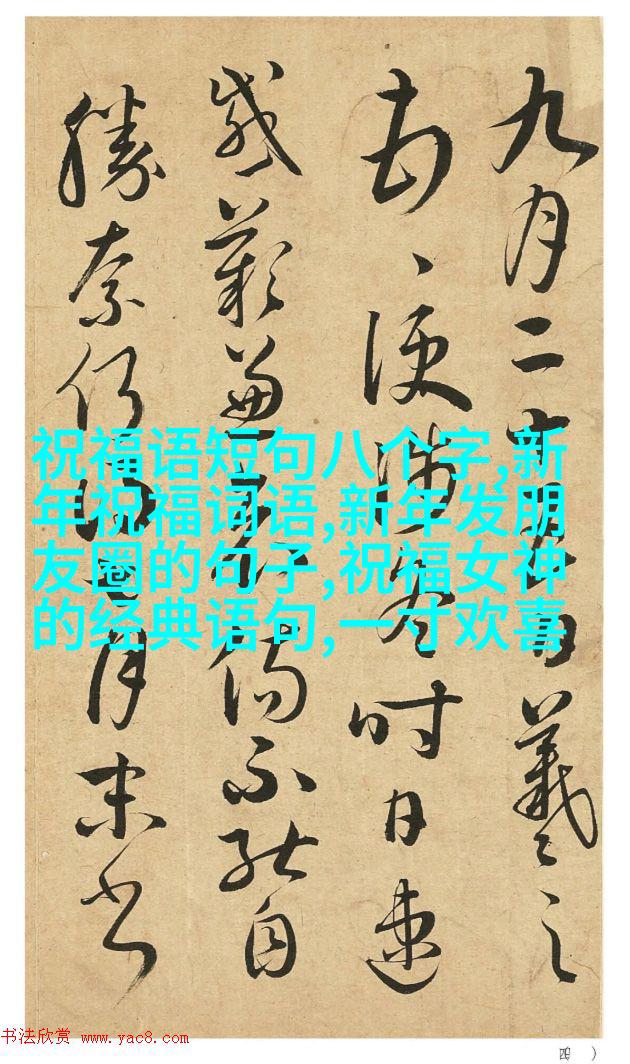 九月二十日羲之
便涉冬时日速
感歎兼傷不能自
勝奈何得月末書
祝福语短句八个字,新
年祝福词语,新年发朋
友圈的句子,祝福女神
的经典语句,一寸欢喜
书法欣赏 www.yac8.com
四 )